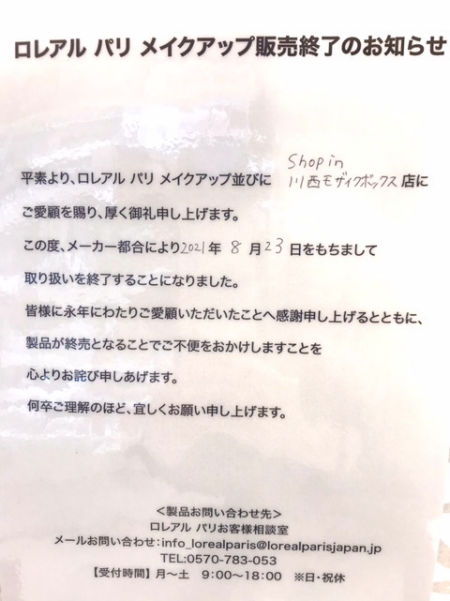 ロレアル パリ メイクアップ販売終了のお知らせ
平素より、ロレアル パリ メイクアップ並びに Shop in 川西モザイクボックス 店に
ご愛顧を賜り、厚く御礼申し上げます。
この度、メーカー都合により2021年 8 月23 日をもちまして
取り扱いを終了することになりました。
皆様に永年にわたりご愛顧いただいたことへ感謝申し上げるとともに、
製品が終売となることでご不便をおかけしますことを
心よりお詫び申しあげます。
何卒ご理解のほど、宜しくお願い申し上げます。
＜製品お問い合わせ先＞
ロレアル パリお客様相談室
メールお問い合わせ：info_lorealparis@lorealparisjapan.jp
TEL:0570-783-053
【受付時間】 月〜土 9：00〜18：00 ※日・祝休